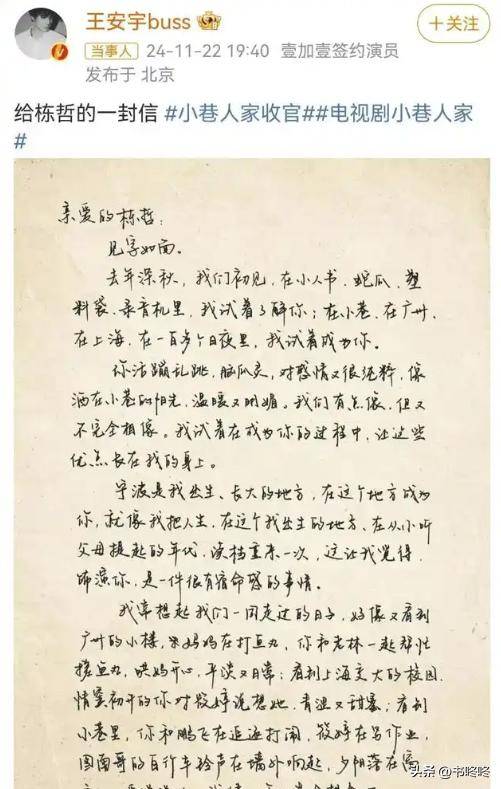 王安宇buss
当事人 24-11-22 19:40 壹加壹签约演员
发布于 北京
+关注
给栋哲的一封信 #小巷人家收官##电视剧小巷人家
#
亲爱的栋哲:
见字如面。
去年深秋，我们初见，在小人书、蛇瓜、塑
料袋、录音机里，我试着了解你；在小巷、在广州、
在上海，在一百多个日夜里，我试着成为你。
你活蹦乱跳，脑瓜灵，对感情又很纯粹，像
洒在小巷的阳光，温暖又明媚。我们有点像，但又
不完全相像。我试着在成为你的过程中，让这些
优点长在我的身上。
宁波是我出生、长大的地方，在这个地方成为
你，就像我把人生，在这个我出生的地方、在从小听
父母提起的年代，读档重来一次，这让我觉得，
饰演你，是一件很有宿命感的事情。
我常想起我们一同走过的日子，好像又看到
广州的小楼，宋妈妈在打鱼丸，你和老林一起帮忙
搓鱼丸，哄妈开心，平淡又日常；看到上海交大的校园，
情窦初开的你对筱婷说想她，青涩又甜蜜；看到
小巷里，你和鹏飞在追逐打闹，筱婷在写作业，
图南哥的自行车铃声在墙外响起，夕阳落在窗
头条 @书咚咚